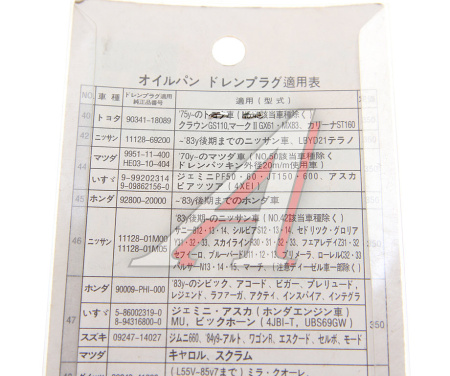 オイルパン ドレンプラグ適用表
NO. 車種 ドレンプラグ適用 純正品番号 適用(型式)
40 トヨタ 90341-18089 '75y-のトヨタ車(該当車種除く)
クラウンGS110,マークⅡGX61・MX83、カリーナST160
42 ニッサン 11128-69200 ~'83y後期までのニッサン車、LBYD21テラノ
44 マツダ 9951-11-400 '70y-のマツダ車(NO.50該当車種除く
HE03-10-404 ドレンパッキン外径20m/m使用車)
いすゞ 9-99202314 ジェミニPF50・60・JT150・600、アスカ
9-09862156-0 ピアッツア(4XEI)
45 ホンダ 92800-20000 ~'83y後期までのホンダ車
46 ニッサン 11128-01M00 11128-01M05 '83y後期-のニッサン車(NO.42該当車種除く)
サニーB12・13・14、シルビアS12・13・14、セドリック・グロリア
Y31・32・33、スカイラインR30・31・32・33、フェアレディZ31・32
セフィーロ、ブルーバードU11・12・13、プリメーラ、ローレルC32・33
パルサーN13・14・15、マーチ、(注意ディーゼル車一部除く)
47 ホンダ 90009-PHI-000 '83y-のシビック、アコード、ビガー、プレリュード、
レジェンド、ラファーガ、アクティ、インスパイア、インテグラ
いすゞ 5-86002319-0 ジェミニ・アスカ(ホンダエンジン車)
8-94316800-0 MU、ビックホーン(4JBI-T、UBS69GW) 350
スズキ 09247-14027 ジムニ660、'84y9-アルト、ワゴンR、エスクード、セルボ、モード
マツダ キャロル、スクラム
(L55V-85y7まで)ミラ・クオーレ、